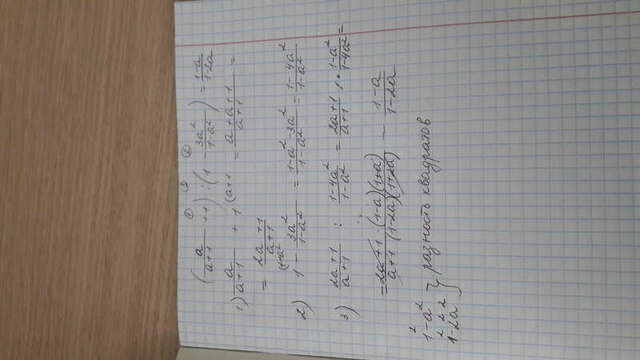 ① ③ ②
(a/(a+1) + 1) : (1 - 3a²/(1-a²)) = (1-a)/(1-2a)
1) a/(a+1) + 1^(a+1) = (a+a+1)/(a+1) =
= (2a+1)/(a+1)
2) 1^(1-a²) - 3a²/(1-a²) = (1-a²-3a²)/(1-a²) = (1-4a²)/(1-a²)
3) (2a+1)/(a+1) : (1-4a²)/(1-a²) = (2a+1)/(a+1) · (1-a²)/(1-4a²) =
= (2a+1)·(1-a)(1+a)/(a+1)(1-2a)(1+2a) - (1-a)/(1-2a)
1²-a² } разность квадратов
1²-2²a²